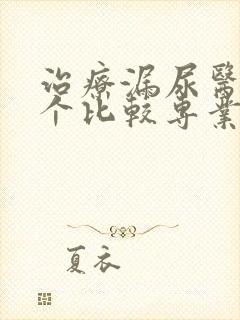 治療漏尿醫
个比較専業
夏衣